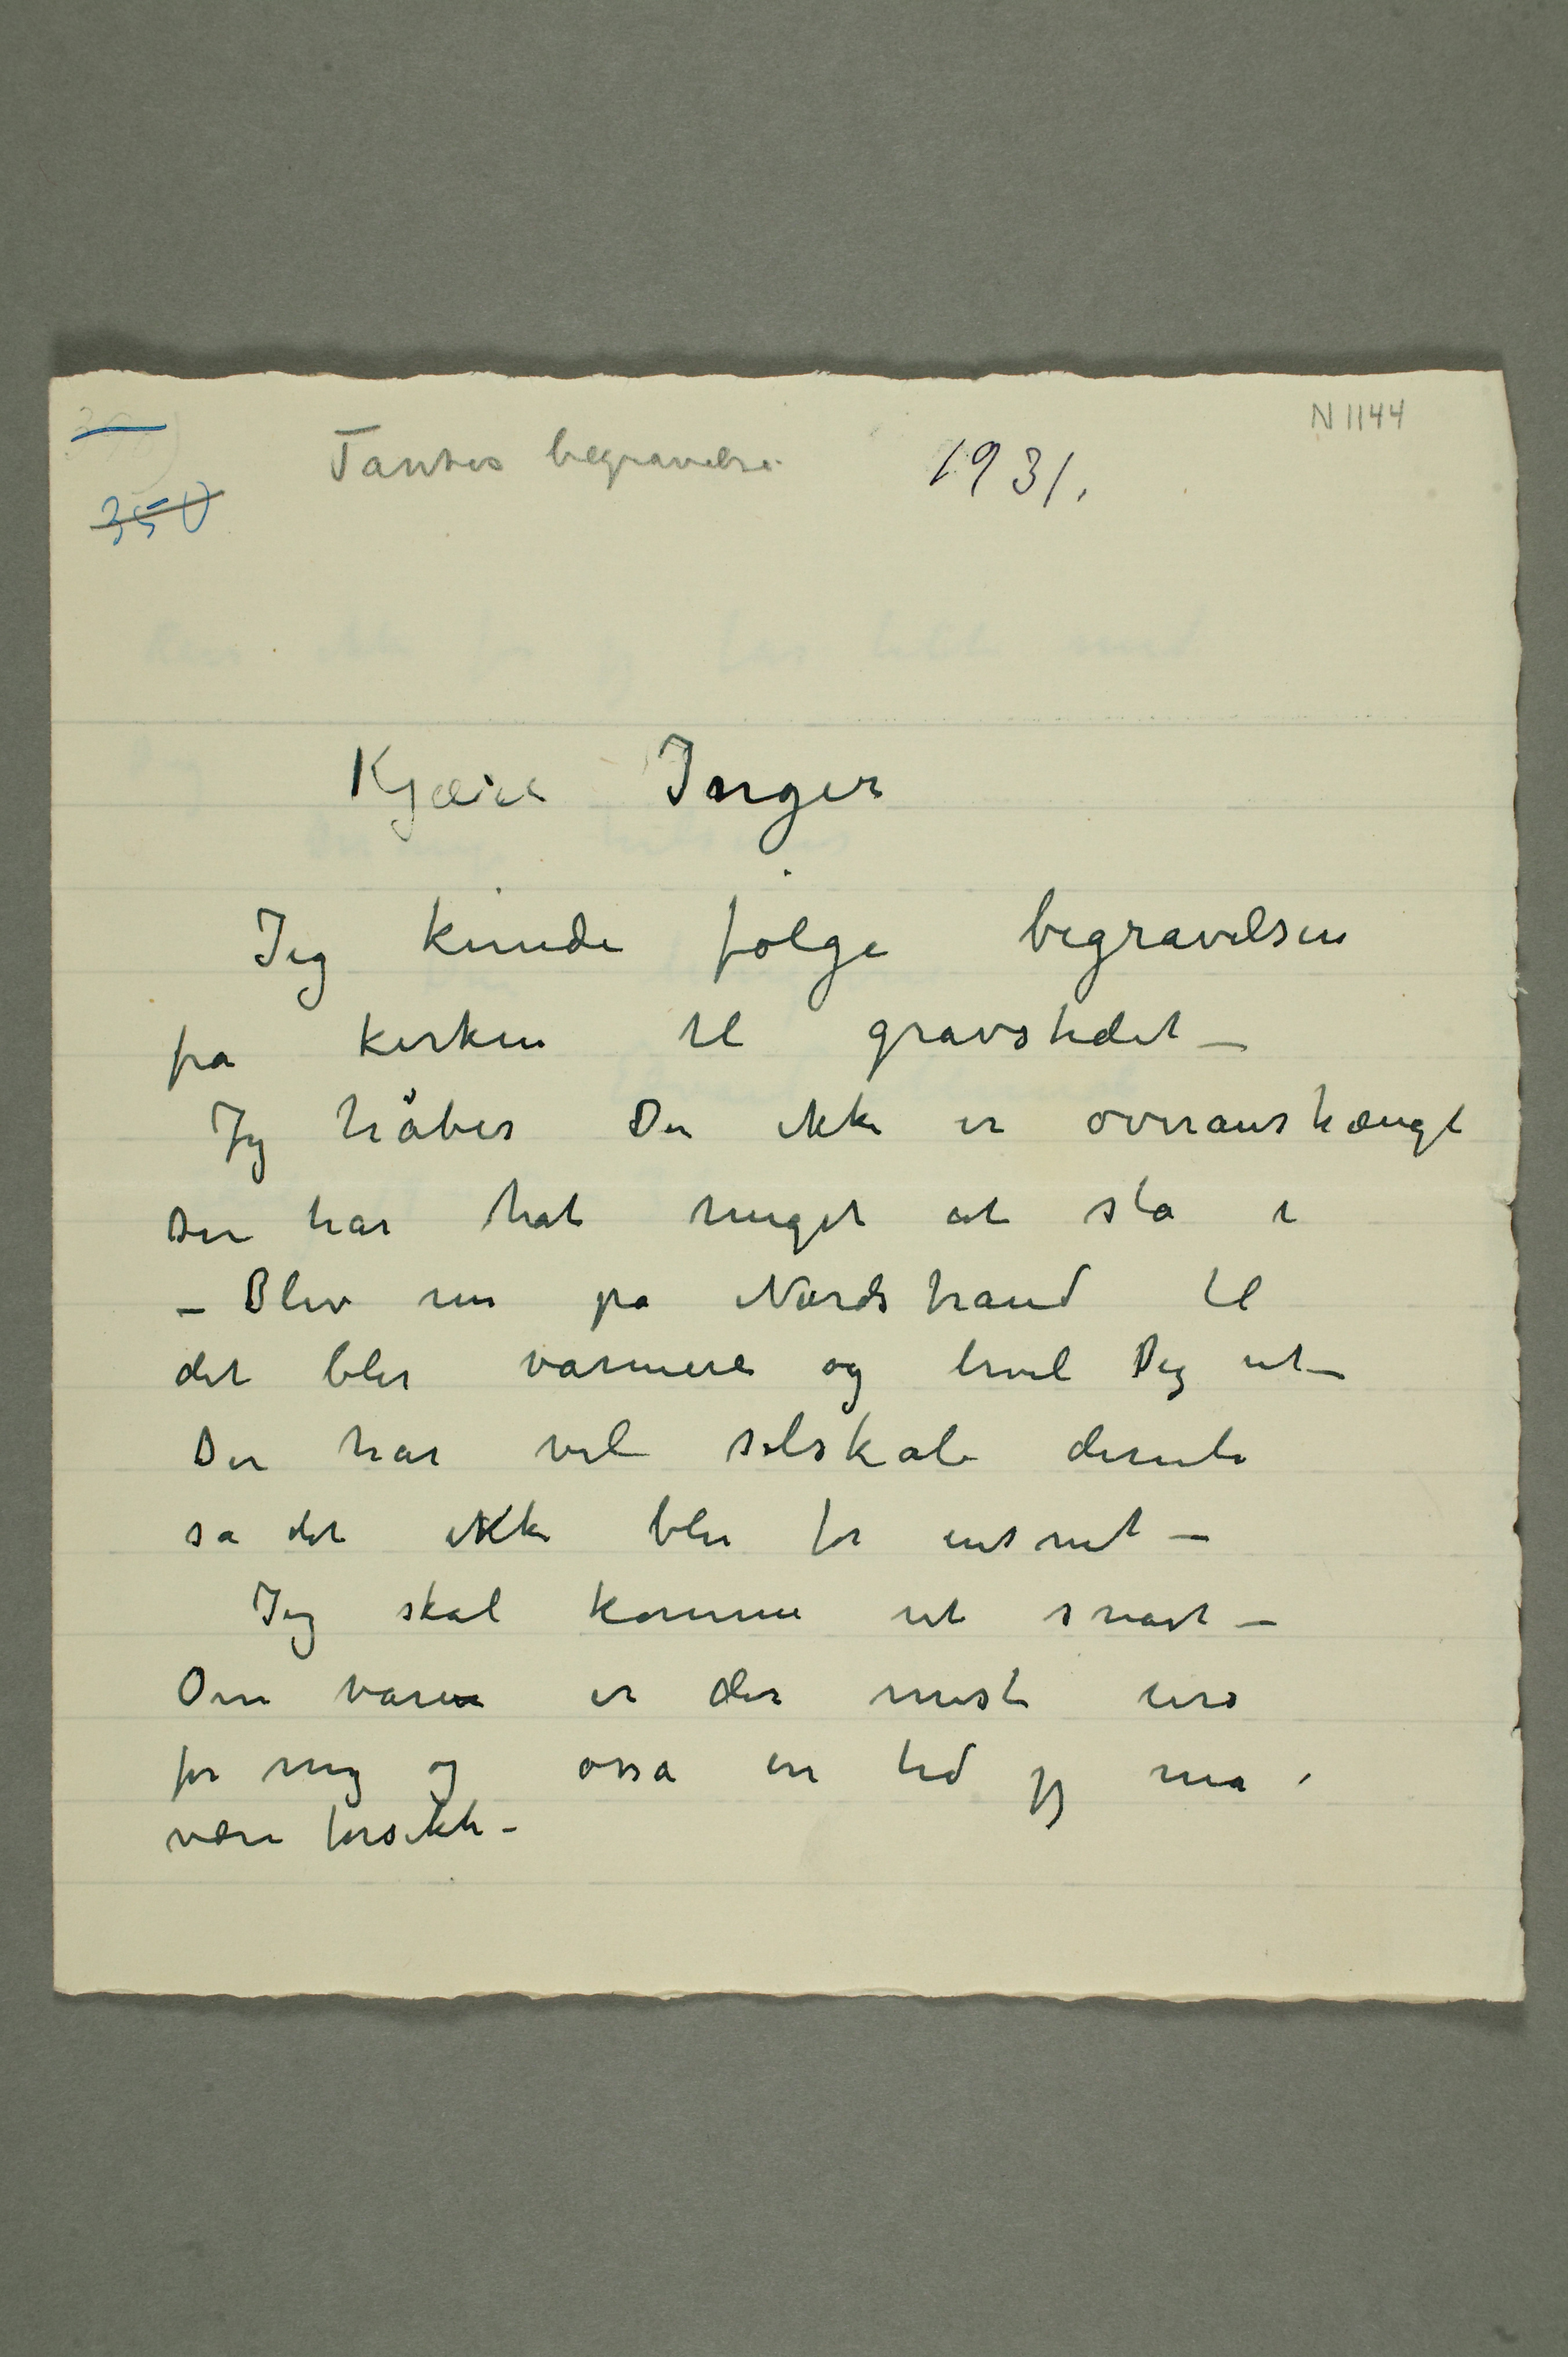 N 1144
Tantes begravelse
1931.
350
Kjære Inger
Jeg kunde følge begravelsen
fra kirken til gravstedet –
Jeg håber Du ikke er overanstrængt
Du har hat meget at stå i
– Bliv nu på Nordstrand til
det blir varmere og hvil Dig ut –
Du har vel selskab derute
så det ikke blir for ensomt –
Jeg skal komme ut snart –
Om våren er der mest uro
for mig og osså en tid jeg må
være forsikti –